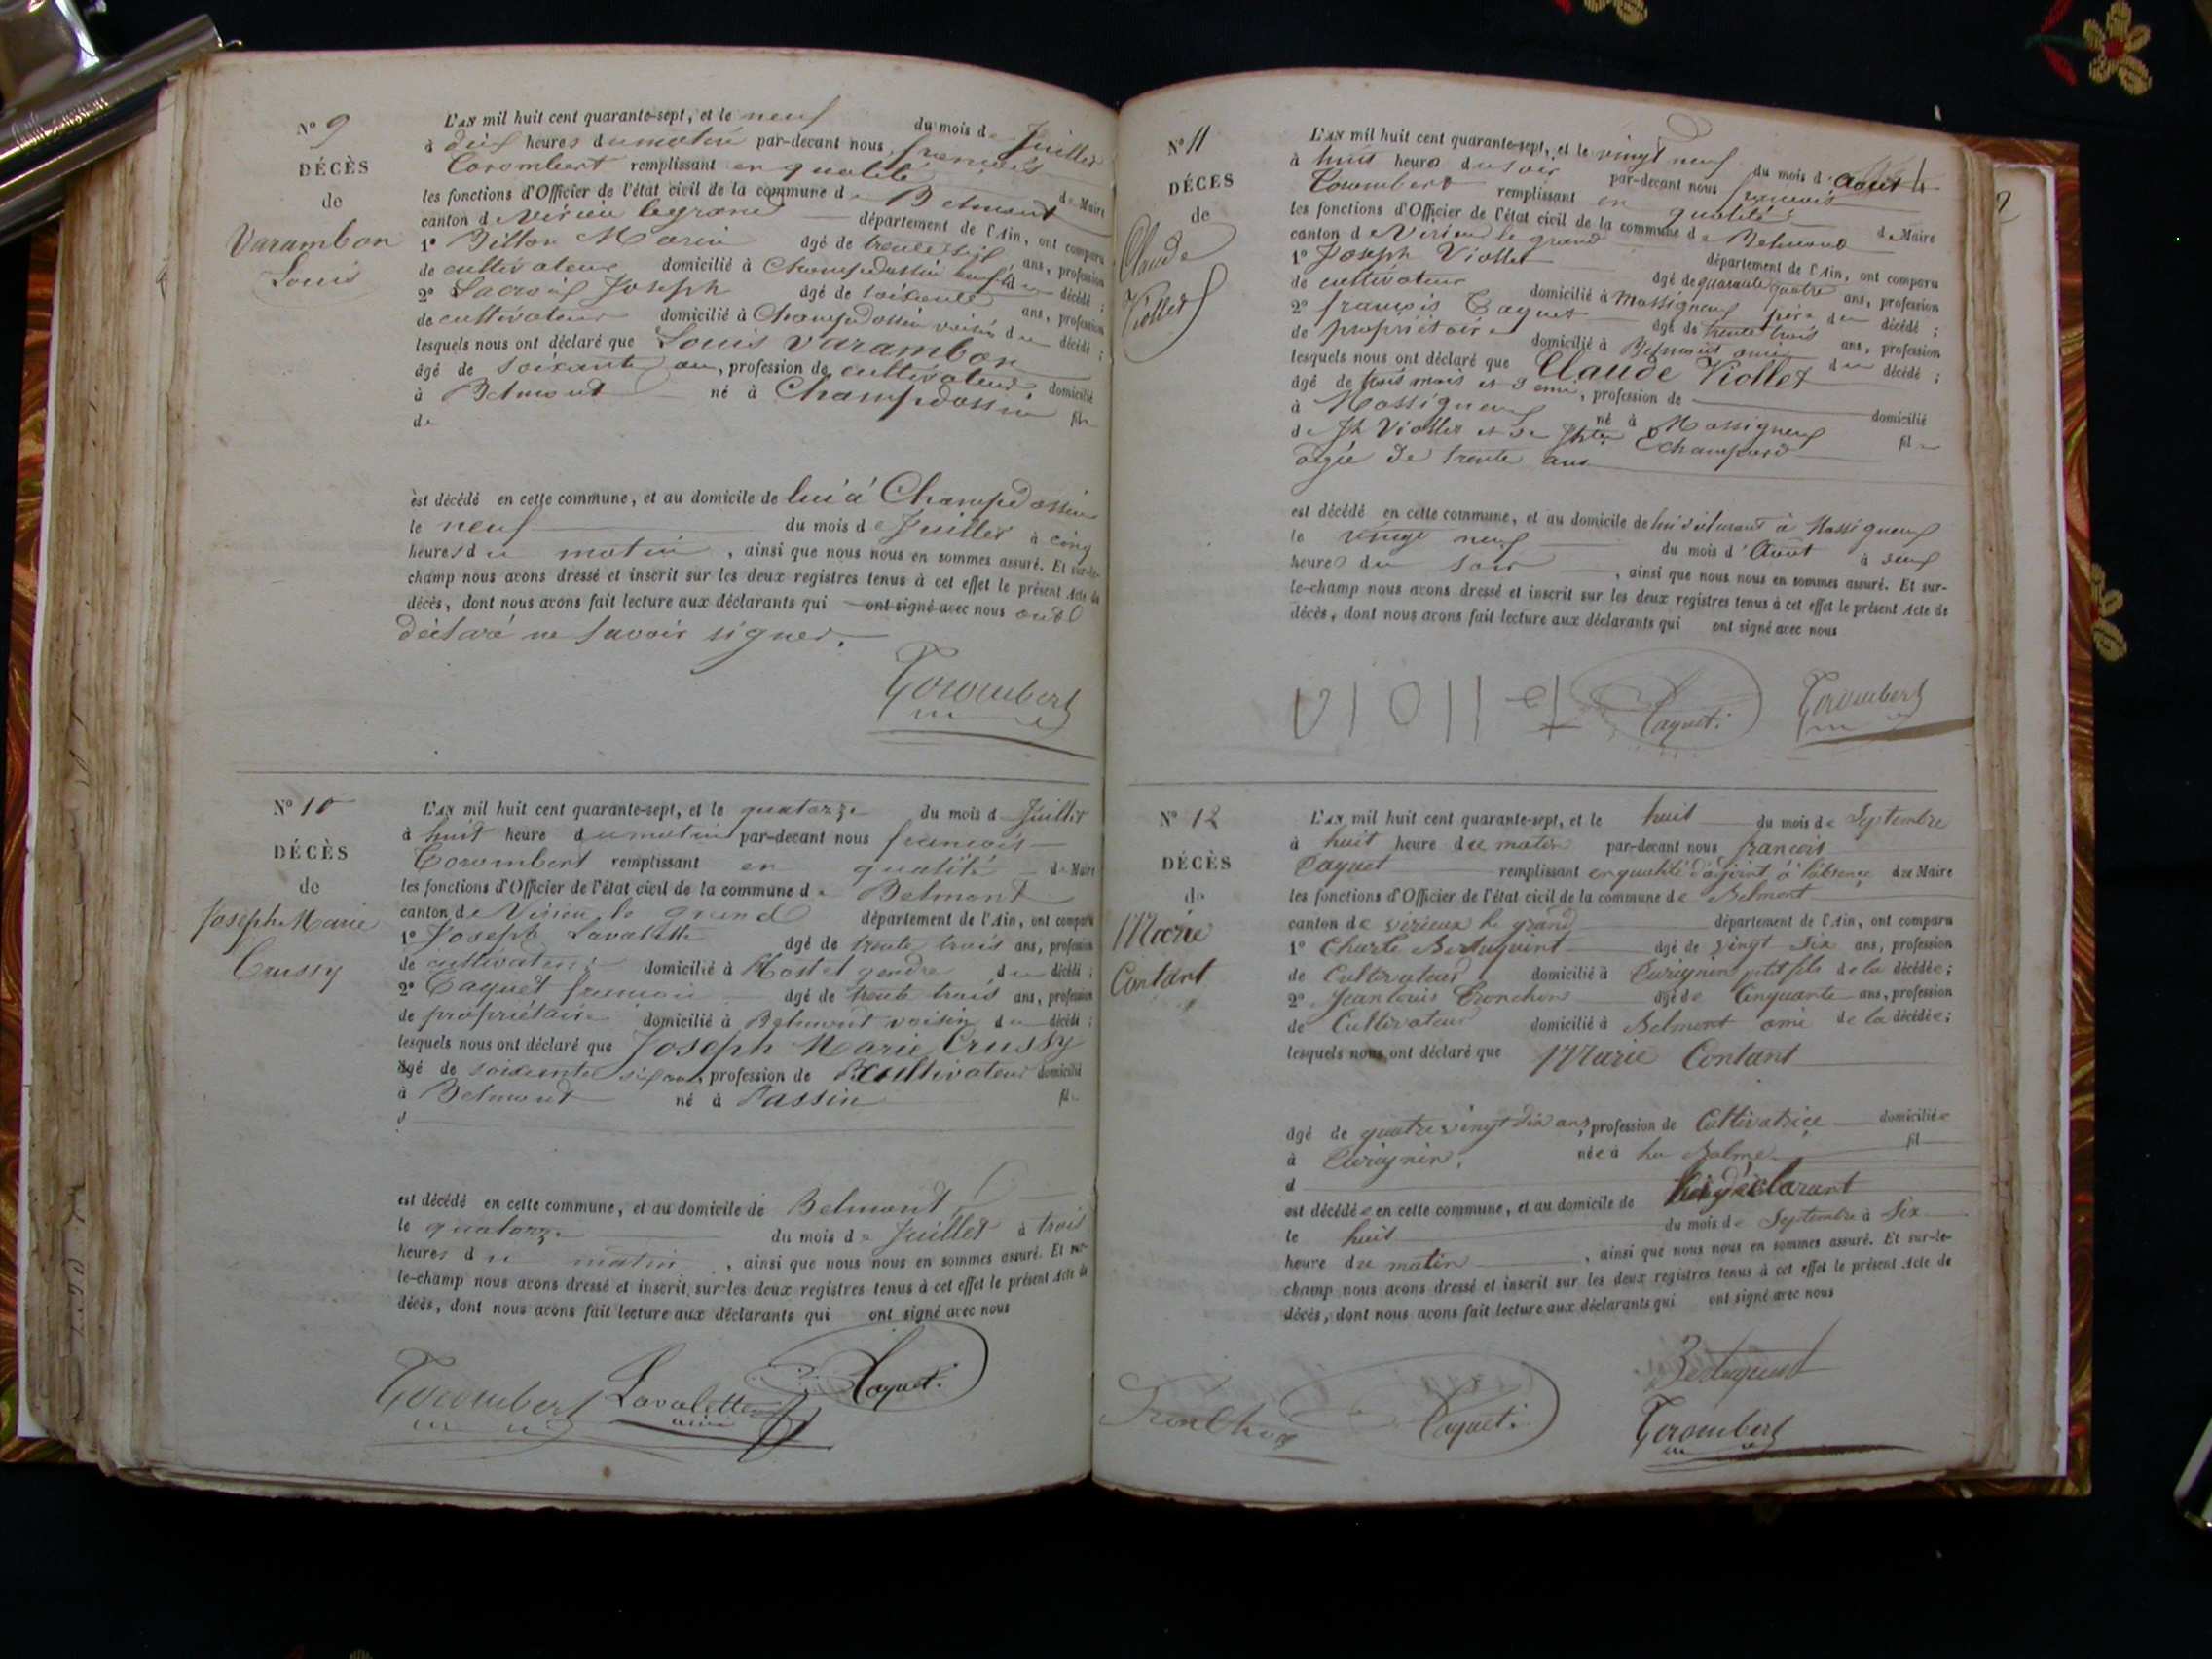 N° 9
DÉCÈS
de
Varambon
Louis
L'AN mil huit cent quarante-sept, et le neuf du mois de Juillet
à dix heures du matin par-devant nous françois
Corombert remplissant en qualité de Maire
les fonctions d'Officier de l'état civil de la commune de Belmont
canton de Virieu legrand département de l'Ain, ont comparu
1° Billon Marin âgé de trente six ans, profession
de cultivateur domicilié à Champdossin du décédé ;
2° Lacroix Joseph âgé de soixante ans, profession
de cultivateur domicilié à Champdossin voisin du décédé ;
lesquels nous ont déclaré que Louis Varambon
âgé de soixante ans, profession de cultivateur domicilié
à Belmont né à Champdossin fils
de
est décédé en cette commune, et au domicile de lui à Champdossin
le neuf du mois de Juillet à cinq
heures du matin , ainsi que nous nous en sommes assuré. Et sur-le-
champ nous avons dressé et inscrit sur les deux registres tenus à cet effet le présent Acte de
décès, dont nous avons fait lecture aux déclarants qui ont signé avec nous ont
déclaré ne savoir signer.
Corombert
N° 10
DÉCÈS
de
Joseph Marie
Crussy
L'AN mil huit cent quarante-sept, et le quatorze du mois de Juillet
à huit heure du matin par-devant nous françois
Corombert remplissant en qualité de Maire
les fonctions d'Officier de l'état civil de la commune de Belmont
canton de Virieu le grand département de l'Ain, ont comparu
1° Joseph Lavalette âgé de trente trois ans, profession
de cultivateur domicilié à Hostel gendre du décédé ;
2° Caquet françois âgé de trente trois ans, profession
de propriétaire domicilié à Belmont voisin du décédé ;
lesquels nous ont déclaré que Joseph Marie Crussy
âgé de soixante six ans, profession de cultivateur domicilié
à Belmont né à Passin fils
d
est décédé en cette commune, et au domicile de Belmont
le quatorze du mois de Juillet à trois
heures du matin , ainsi que nous nous en sommes assuré. Et sur-
le-champ nous avons dressé et inscrit sur les deux registres tenus à cet effet le présent Acte de
décès, dont nous avons fait lecture aux déclarants qui ont signé avec nous
Corombert Lavalette Caquet
N° 11
DÉCÈS
de
Claude
Viollet
L'AN mil huit cent quarante-sept, et le vingt neuf du mois d'Aout
à huit heures du soir par-devant nous françois
Corombert remplissant en qualité de Maire
les fonctions d'Officier de l'état civil de la commune de Belmont
canton de Virieu le grand département de l'Ain, ont comparu
1° Joseph Viollet âgé de quarante quatre ans, profession
de cultivateur domicilié à Massigneux père du décédé ;
2° françois Caquet âgé de trente trois ans, profession
de propriétaire domicilié à Belmont ami du décédé ;
lesquels nous ont déclaré que Claude Viollet
âgé de trois mois et demi, profession de domicilié
à Massigneux né à Massigneux fils
de Jh Viollet et de Champard
agée de trente ans
est décédé en cette commune, et au domicile de lui déclarant à Massigneux
le vingt neuf du mois d'Aout à
heures du soir , ainsi que nous nous en sommes assuré. Et sur-
le-champ nous avons dressé et inscrit sur les deux registres tenus à cet effet le présent Acte de
décès, dont nous avons fait lecture aux déclarants qui ont signé avec nous
Viollet Caquet Corombert
N° 12
DÉCÈS
de
Marie
Contant
L'AN mil huit cent quarante-sept, et le huit du mois de Septembre
à huit heure du matin par-devant nous francois
Caquet remplissant en qualité d'adjoint à l'absence du Maire
les fonctions d'Officier de l'état civil de la commune de Belmont
canton de virieux le grand département de l'Ain, ont comparu
1° Charle âgé de vingt six ans, profession
de Cultivateur domicilié à petit fils de la décédée ;
2° Jean louis Tronchon âgé de Cinquante ans, profession
de Cultivateur domicilié à Belmont ami de la décédée ;
lesquels nous ont déclaré que Marie Contant
âgé de quatre vingt dix ans, profession de Cultivatrice domiciliée
à née à La Balme fil
d
est décédée en cette commune, et au domicile de déclarant
le huit du mois de Septembre à Six
heure du matin , ainsi que nous nous en sommes assuré. Et sur-le-
champ nous avons dressé et inscrit sur les deux registres tenus à cet effet le présent Acte de
décès, dont nous avons fait lecture aux déclarants qui ont signé avec nous
Caquet
Corombert